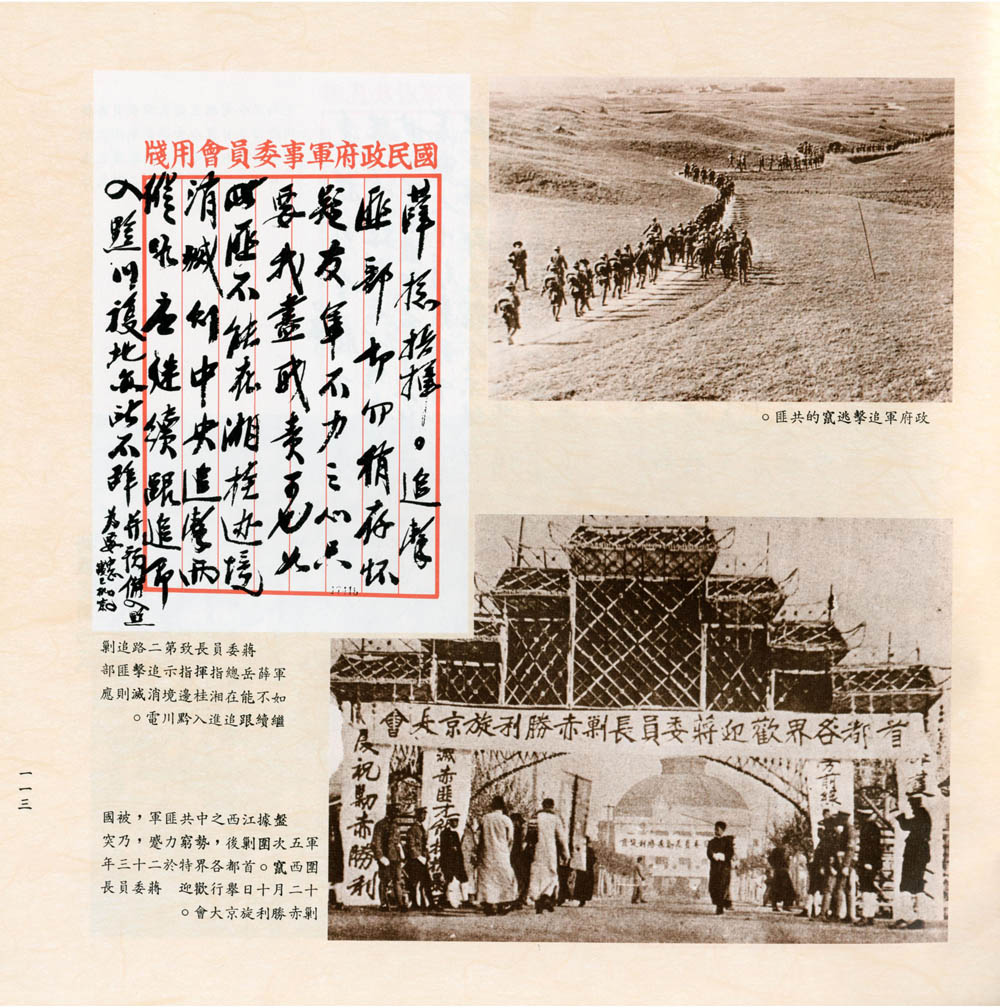 國民政府軍事委員會用牋
薛總指揮。追擊
匪部切勿稍存懷
疑友軍不力之心只
要我盡職責可也如
匪不能在湘桂邊境
消滅則中央追擊兩
縱隊應繼續跟追即
入黔川腹地亦所不辭
為要
政府軍追擊逃竄的共匪。
蔣委員長致第二路追剿
軍薛岳總指揮指示追擊匪部
如不能在湘桂邊境消滅則應
繼續跟追進入黔川電。
首都各界歡迎蔣委員長剿赤勝利旋京大會
慶祝剿赤勝利
盤據江西之中共匪軍，被國
軍五次圍剿後，勢窮力蹙，乃突
圍西竄。首都各界特於二十三年
十二月十日舉行歡迎 蔣委員長
剿赤勝利旋京大會。
一一三